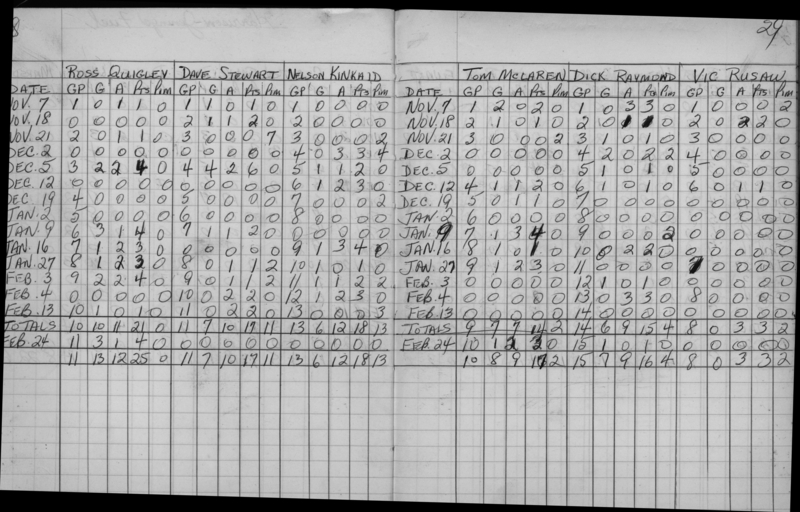 8
29
ROSS QUIGLEY DAVE STEWART NELSON KINKAID
DATE GP G A Pts Pim GP G A Pts Pim GP G A Pts Pim
NOV. 7 1 0 1 1 0 1 1 0 1 0 1 0 0 0 0
NOV. 18 0 0 0 0 0 2 1 1 2 0 2 0 0 0 0
NOV. 21 2 0 1 1 0 3 0 0 0 7 3 0 0 0 2
DEC. 2 0 0 0 0 0 0 0 0 0 0 4 0 3 3 4
DEC. 5 3 2 2 4 0 4 4 2 6 0 5 1 1 2 0
DEC. 12 0 0 0 0 0 0 0 0 0 0 6 1 2 3 0
DEC. 19 4 0 0 0 0 5 0 0 0 0 7 0 0 0 2
JAN. 2 5 0 0 0 0 6 0 0 0 0 8 0 0 0 0
JAN. 9 6 3 1 4 0 7 1 1 2 0 0 0 0 0 0
JAN. 16 7 1 2 3 0 0 0 0 0 0 9 1 3 4 0
JAN. 27 8 1 2 3 0 8 0 1 1 2 10 1 0 1 0
FEB. 3 9 2 2 4 0 9 0 1 1 2 11 1 1 2 2
FEB. 4 0 0 0 0 0 10 0 2 2 0 12 1 2 3 0
FEB. 13 10 1 0 1 0 11 0 2 2 0 13 0 0 0 3
TOTALS 10 10 11 21 0 11 7 10 17 11 13 6 12 18 13
FEB. 24 11 3 1 4 0 0 0 0 0 0 0 0 0 0 0
11 13 12 25 0 11 7 10 17 11 13 6 12 18 13
TOM MCLAREN DICK RAYMOND VIC RUSAW
DATE GP G A Pts Pim GP G A Pts Pim GP G A Pts Pim
NOV. 7 1 2 0 2 0 1 0 3 3 0 1 0 0 0 2
NOV. 18 2 1 0 1 0 2 0 1 1 0 2 0 2 2 0
NOV. 21 3 0 0 0 2 3 1 0 1 0 3 0 0 0 0
DEC. 2 0 0 0 0 0 4 2 0 2 2 4 0 0 0 0
DEC. 5 0 0 0 0 0 5 1 0 1 0 5 0 0 0 0
DEC. 12 4 1 1 2 0 6 1 0 1 0 6 0 1 1 0
DEC. 19 5 0 1 1 0 7 0 0 0 0 0 0 0 0 0
JAN. 2 6 0 0 0 0 8 0 0 0 0 0 0 0 0 0
JAN. 9 7 1 3 4 0 9 0 0 0 2 0 0 0 0 0
JAN. 16 8 1 0 1 0 10 0 2 2 0 0 0 0 0 0
JAN. 27 9 1 2 3 0 11 0 0 0 0 7 0 0 0 0
FEB. 3 0 0 0 0 0 12 1 0 1 0 0 0 0 0 0
FEB. 4 0 0 0 0 0 13 0 3 3 0 8 0 0 0 0
FEB. 13 0 0 0 0 0 14 0 0 0 0 0 0 0 0 0
TOTALS 9 7 7 14 2 14 6 9 15 4 8 0 3 3 2
FEB. 24 10 1 2 3 0 15 1 0 1 0 0 0 0 0 0
10 8 9 17 2 15 7 9 16 4 8 0 3 3 2